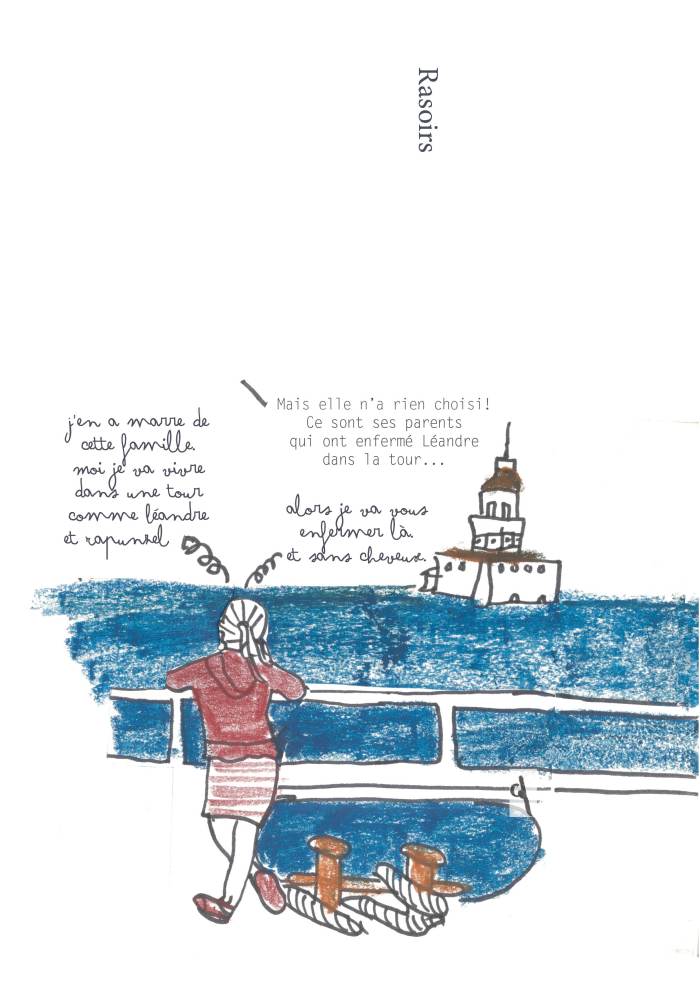 Rasoirs
j'en a marre de
cette famille.
moi je va vivre
dans une tour
comme léandre
et rapunzel
Mais elle n'a rien choisi!
Ce sont ses parents
qui ont enfermé Léandre
dans la tour...
alors je va vous
enfermer là.
et sans cheveux.